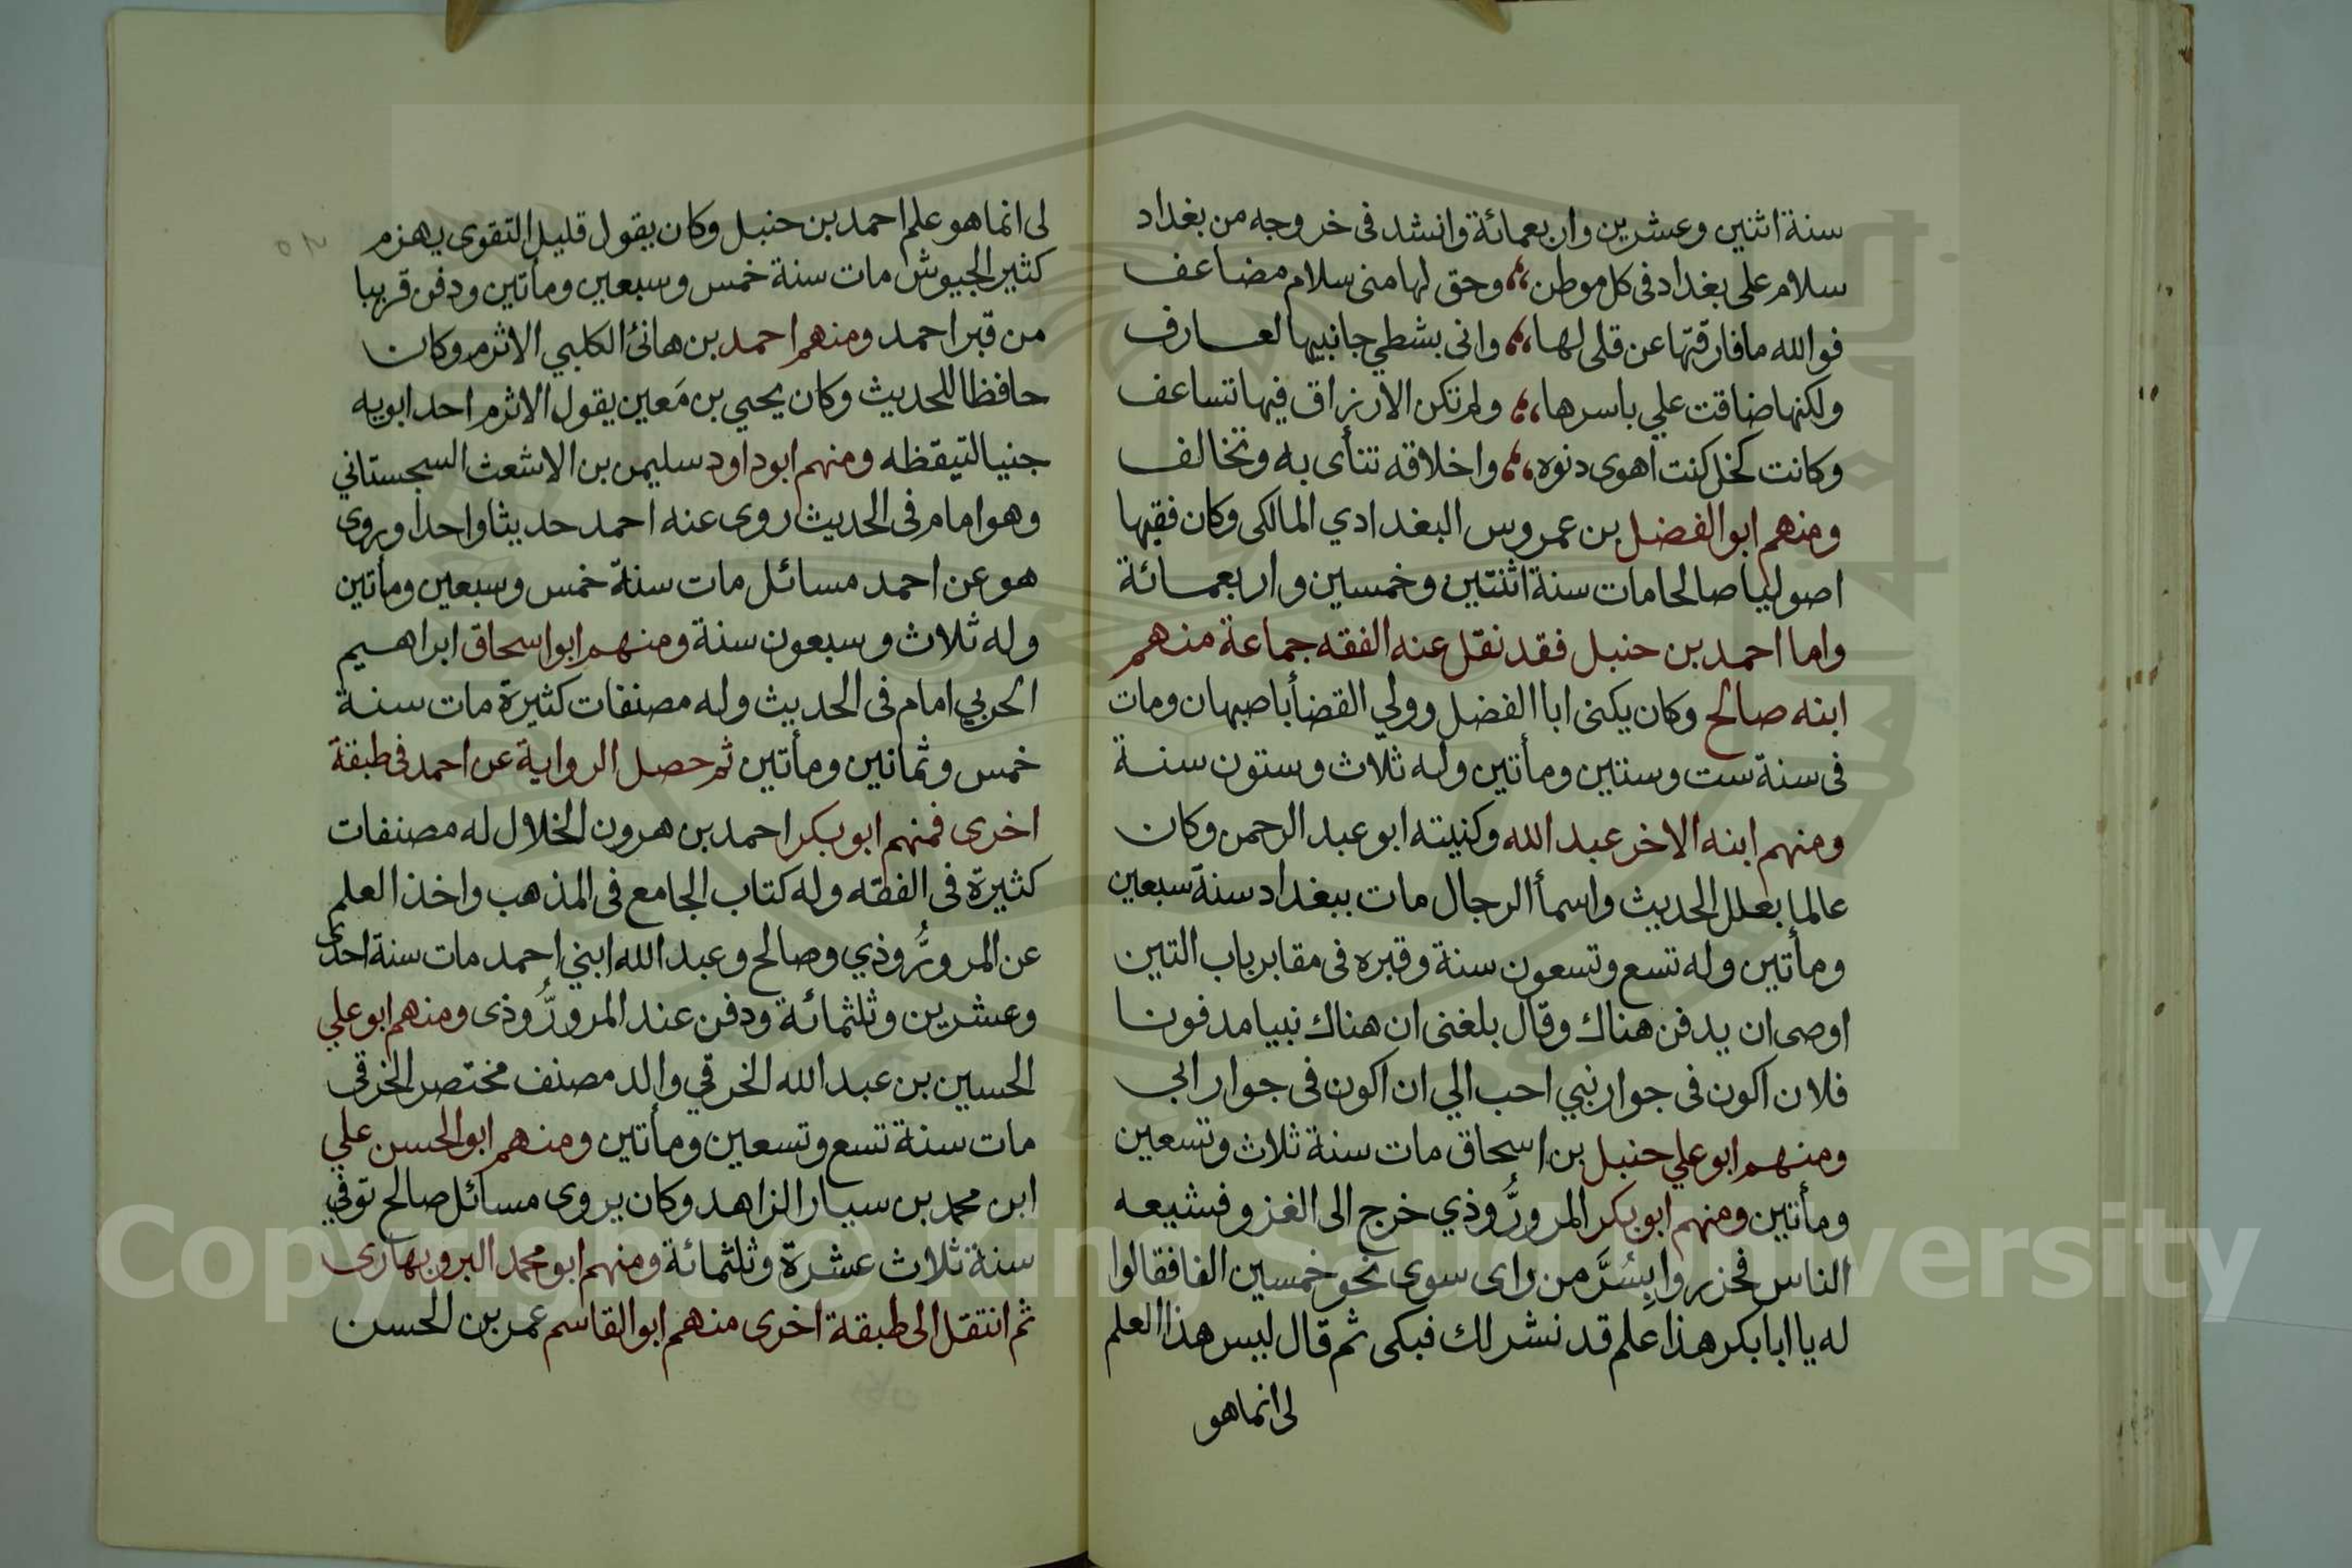 سنة اثنين وعشرين واربعمائة وانشد فى خروجه من بغداد
سلام على بغداد فى كل موطن ،، وحق لها منى سلام مضاعف
فوالله ما فارقتها عن قلى لها ،، وانى بشطي جانبيها لعارف
ولكنها ضاقت علي باسرها ،، ولم تكن الارزاق فيها تساعف
وكانت كخل كنت اهوى دنوه ،، واخلاقه تنأى به وتخالف
ومنهم ابو الفضل بن عمروس البغدادي المالكى وكان فقيها
اصوليا صالحا مات سنة اثنتين وخمسين واربعمائة
واما احمد بن حنبل فقد نقل عنه الفقه جماعة منهم
ابنه صالح وكان يكنى ابا الفضل وولي القضأ باصبهان ومات
فى سنة ست وستين ومأتين وله ثلاث وستون سنة
ومنهم ابنه الاخر عبد الله وكنيته ابو عبد الرحمن وكان
عالما بعلل الحديث واسمأ الرجال مات ببغداد سنة سبعين
ومأتين وله تسع وتسعون سنة وقبره فى مقابر باب التين
اوصى ان يدفن هناك وقال بلغنى ان هناك نبيا مدفونا
فلان اكون فى جوار نبي احب الي ان اكون فى جوار ابي
ومنهم ابو علي حنبل بن اسحاق مات سنة ثلاث وتسعين
ومأتين ومنهم ابو بكر المرورُّوذي خرج الى الغزو فشيعه
الناس فحزروا بِسُرَّ من راى سوى نحو خمسين الفا فقالوا
له يا ابا بكر هذا علم قد نشر لك فبكى ثم قال ليس هذا العلم
لى انما هو
لى انما هو علم احمد بن حنبل وكان يقول قليل التقوى يهزم
كثير الجيوش مات سنة خمس وسبعين ومأتين ودفن قريبا
من قبر احمد ومنهم احمد بن هانئ الكلبي الاثرم وكان
حافظا للحديث وكان يحيي بن مَعين يقول الاثرم احد ابويه
جنيا لتيقظه ومنهم ابو داود سليمن بن الاشعث السجستاني
وهو امام فى الحديث روى عنه احمد حديثا واحدا وروى
هو عن احمد مسائل مات سنة خمس وسبعين ومأتين
وله ثلاث وسبعون سنة ومنهم ابو اسحاق ابراهيم
الحربي امام فى الحديث وله مصنفات كثيرة مات سنة
خمس وثمانين ومأتين ثم حصل الرواية عن احمد فى طبقة
اخرى فمنهم ابو بكر احمد بن هرون الخلال له مصنفات
كثيرة فى الفقه وله كتاب الجامع فى المذهب واخذ العلم
عن المرورُّوذي وصالح وعبد الله ابني احمد مات سنة احدى
وعشرين وثلثمائة ودفن عند المرورُّوذى ومنهم ابو علي
الحسين بن عبد الله الخرقي والد مصنف مختصر الخرقى
مات سنة تسع وتسعين ومأتين ومنهم ابو الحسن علي
ابن محمد بن سيار الزاهد وكان يروى مسائل صالح توفي
سنة ثلاث عشرة وثلثمائة ومنهم ابو محمد البروبهارى
ثم انتقل الى طبقة اخرى منهم ابو القاسم عمر بن الحسن
Copyright © King Saud University